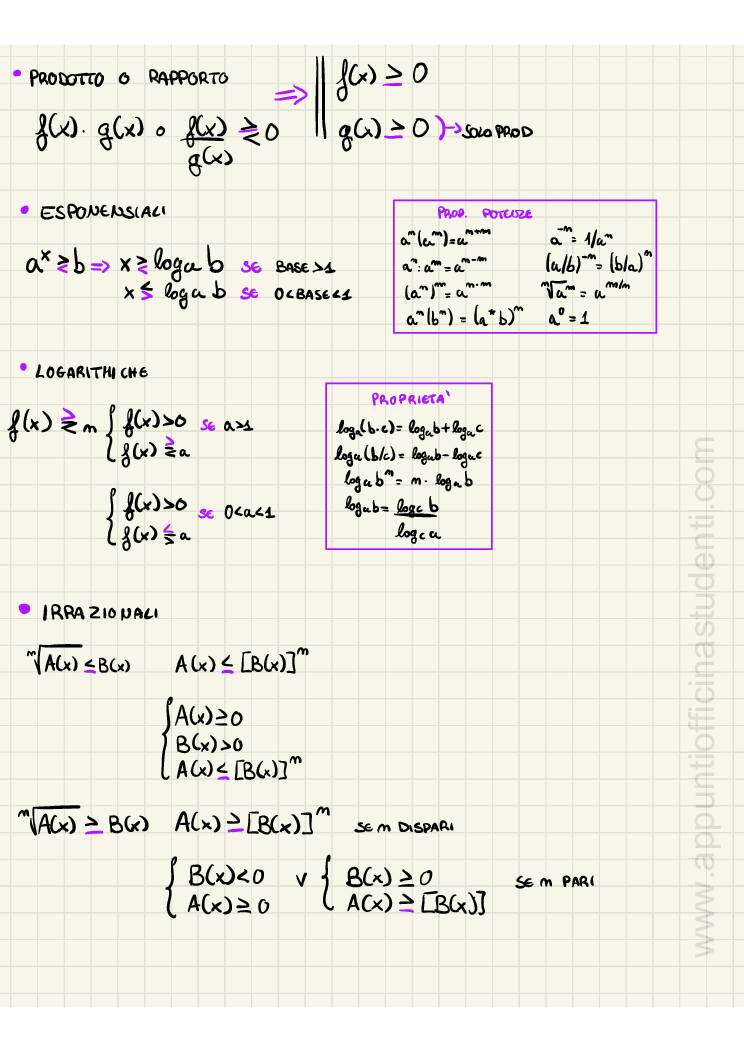 • PRODOTTO O RAPPORTO
f(x) · g(x) o f(x)/g(x) ≷ 0 ⇒ || f(x) ≥ 0
g(x) ≥ 0 }→ SOLO PROD
• ESPONENSIALI
aˣ ≷ b ⇒ x ≷ logₐ b SE BASE>1
x ≶ logₐ b SE 0<BASE<1
PROP. POTENZE
aⁿ(aᵐ)=aⁿ⁺ᵐ
aⁿ:aᵐ=aⁿ⁻ᵐ
(aⁿ)ᵐ=aⁿ·ᵐ
aⁿ(bⁿ) = (a*b)ⁿ
a⁻ⁿ = 1/aⁿ
(a/b)⁻ⁿ = (b/a)ⁿ
ⁿ√aᵐ = a^(m/n)
a⁰ = 1
• LOGARITMICHE
f(x) ⪌ n { f(x)>0 SE a>1
f(x) ⪌ a
{ f(x)>0 SE 0<a<1
f(x) ⪋ a
PROPRIETA'
logₐ(b·c)= logₐb+logₐc
logₐ(b/c)= logₐb-logₐc
logₐbⁿ = n · logₐb
logₐb = log_c b / log_c a
• IRRAZIONALI
ⁿ√A(x) ≤ B(x) A(x) ≤ [B(x)]ⁿ
{ A(x) ≥ 0
B(x) > 0
A(x) ≤ [B(x)]ⁿ
ⁿ√A(x) ≥ B(x) A(x) ≥ [B(x)]ⁿ SE n DISPARI
{ B(x) < 0 v { B(x) ≥ 0 SE n PARI
A(x) ≥ 0 A(x) ≥ [B(x)]
www.appuntiofficinastudenti.com